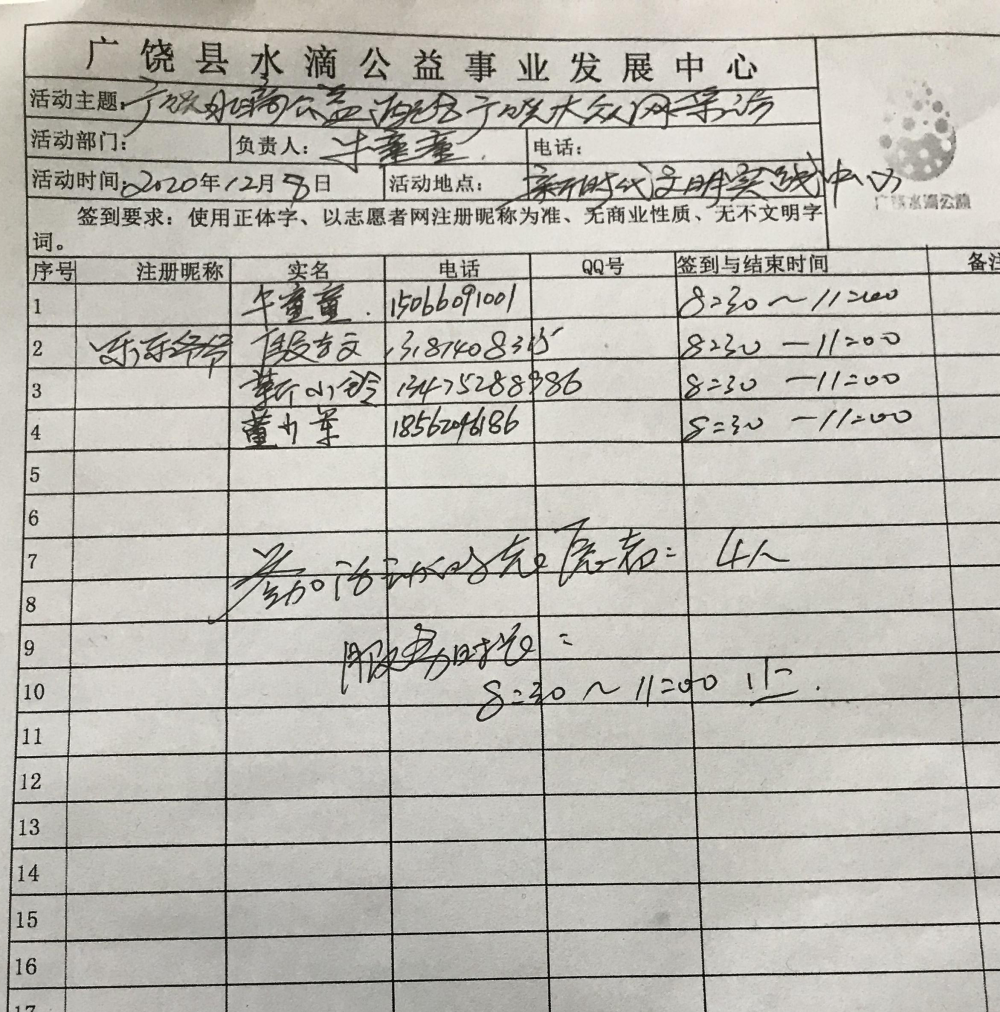 广饶县水滴公益事业发展中心
活动主题：广饶水滴公益 广饶大众网采访
活动部门： 负责人：牛童童 电话：
活动时间：2020年12月8日 活动地点：新时代文明实践中心
广饶水滴公益
签到要求：使用正体字、以志愿者网注册昵称为准、无商业性质、无不文明字
词。
序号 注册昵称 实名 电话 QQ号 签到与结束时间 备注
1 牛童童 15066091001 8:30～11:00
2 乐乐爷爷 13181408315 8:30－11:00
3 靳小玲 13475288986 8:30－11:00
4 董小军 18562046186 8:30－11:00
5
6
7 参加活动的志愿者：4人
8
9 服务时长：
10 8:30～11:00止.
11
12
13
14
15
16
17